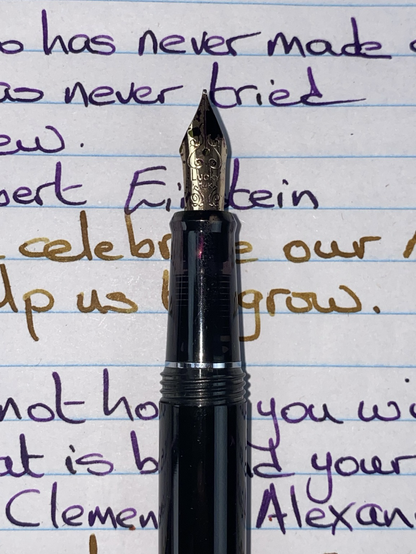 o has never made
as never tried
ew.
bert Ein tein
celebr e our
lp us grow.
not ho you wi
at is b d your
Clemen Alexan